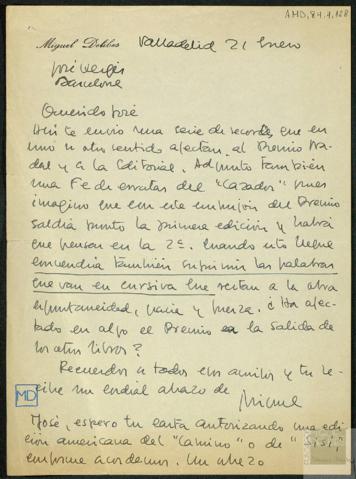 AMD,84,4,128
Miguel Delibes Valladolid 21 Enero
José Vergés
Barcelona
Querido José
Ahí te envío una serie de recortes que en
uno u otro sentido afectan al Premio Na-
dal y a la Editorial. Adjunto también
una Fe de erratas del "Cazador" pues
imagino que con este empujón del Premio
saldrá pronto la primera edición y habrá
que pensar en la 2ª. Cuando esto llegue
convendría también suprimir las palabras
que van en cursiva que restan a la obra
espontaneidad, gracia y fuerza. ¿Ha afec-
tado en algo el Premio a la salida de
los otros libros?
Recuerdos a todos los amigos y tu re-
cibe un cordial abrazo de
Miguel
MD
José, espero tu carta autorizando una edi-
ción americana del "Camino" o de "Sisí",
conforme acordemos. Un abrazo